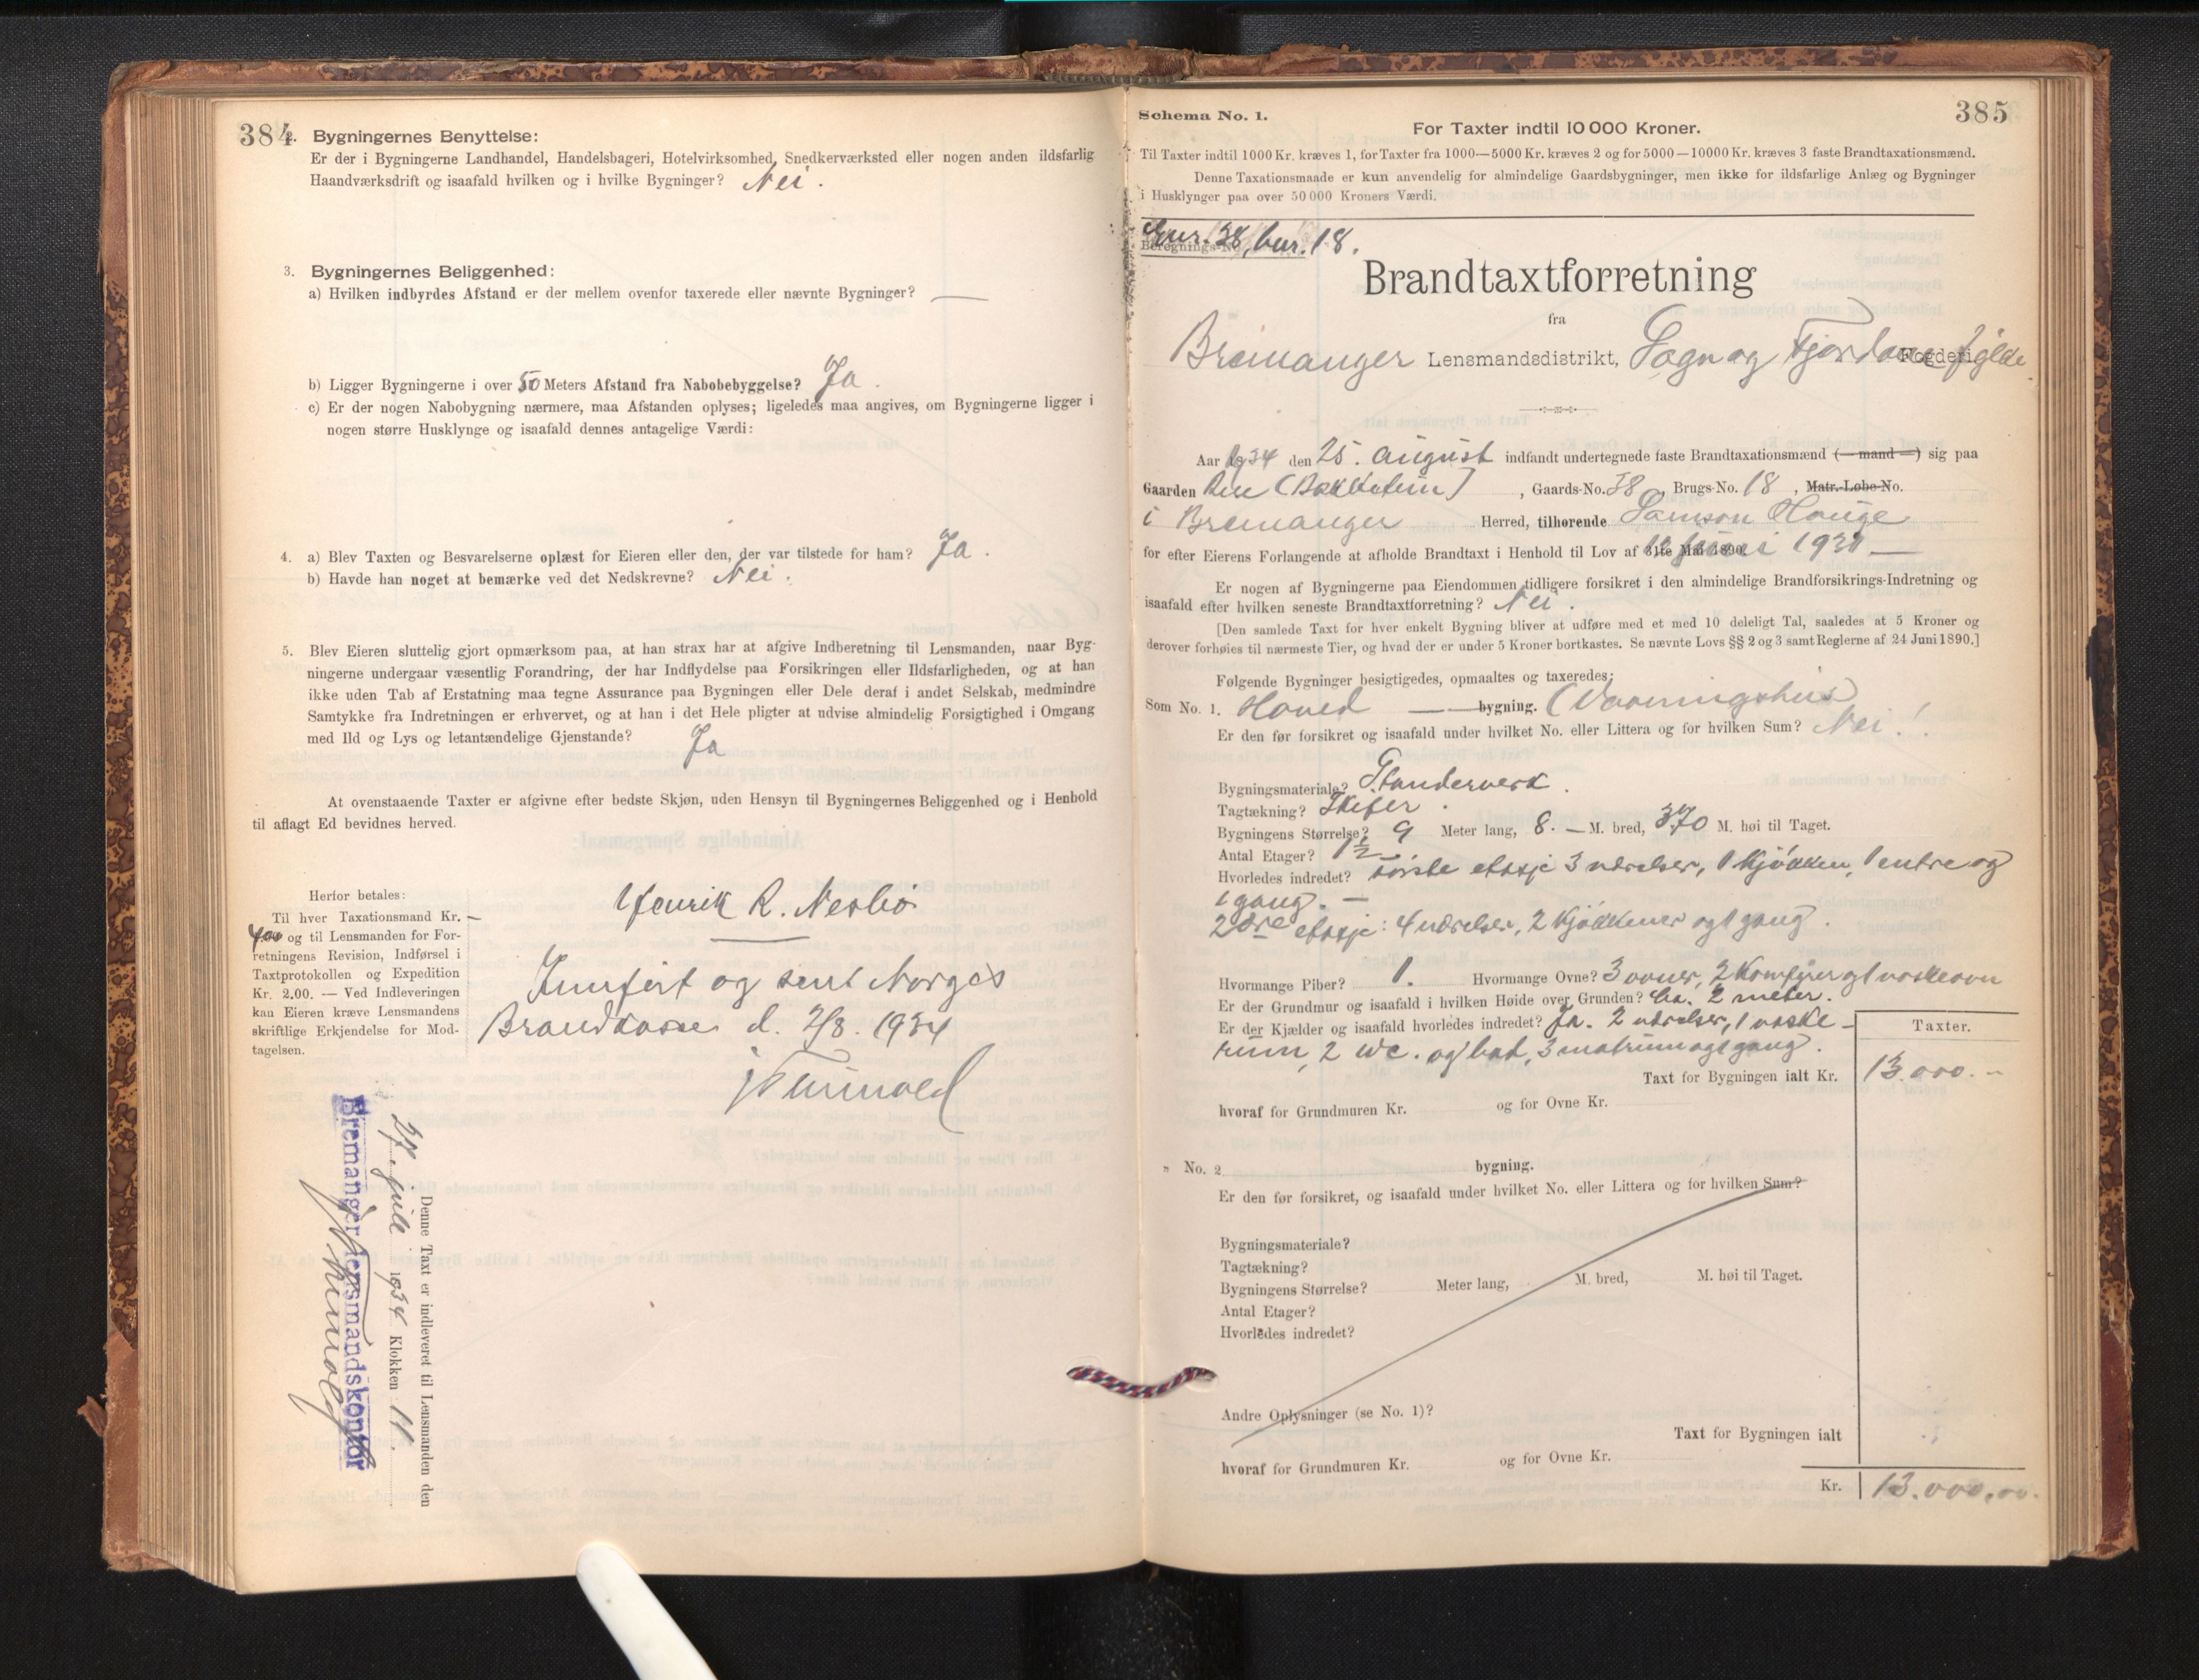 384
2. Bygningernes Benyttelse:
Er der i Bygningerne Landhandel, Handelsbageri, Hotelvirksomhed, Snedkerværksted eller nogen anden ildsfarlig
Haandværksdrift og isaafald hvilken og i hvilke Bygninger? Nei.
3. Bygningernes Beliggenhed:
a) Hvilken indbyrdes Afstand er der mellem ovenfor taxerede eller nævnte Bygninger? —
b) Ligger Bygningerne i over 50 Meters Afstand fra Nabobebyggelse? Ja.
c) Er der nogen Nabobygning nærmere, maa Afstanden oplyses; ligeledes maa angives, om Bygningerne ligger i
nogen større Husklynge og isaafald dennes antagelige Værdi:
4. a) Blev Taxten og Besvarelserne oplæst for Eieren eller den, der var tilstede for ham? Ja.
b) Havde han noget at bemærke ved det Nedskrevne? Nei.
5. Blev Eieren sluttelig gjort opmærksom paa, at han strax har at afgive Indberetning til Lensmanden, naar Byg-
ningerne undergaar væsentlig Forandring, der har Indflydelse paa Forsikringen eller Ildsfarligheden, og at han
ikke uden Tab af Erstatning maa tegne Assurance paa Bygningen eller Dele deraf i andet Selskab, medmindre
Samtykke fra Indretningen er erhvervet, og at han i det Hele pligter at udvise almindelig Forsigtighed i Omgang
med Ild og Lys og letantændelige Gjenstande? Ja
At ovenstaaende Taxter er afgivne efter bedste Skjøn, uden Hensyn til Bygningernes Beliggenhed og i Henhold
til aflagt Ed bevidnes herved.
Herfor betales:
Til hver Taxationsmand Kr. —
4.00 og til Lensmanden for For-
retningens Revision, Indførsel i
Taxtprotokollen og Expedition
Kr. 2.00. — Ved Indleveringen
kan Eieren kræve Lensmandens
skriftlige Erkjendelse for Mod-
tagelsen.
Henrik R. Nesbø
Innført og sent Norges
Brandkasse d. 2/8. 1934
Denne Taxt er indleveret til Lensmanden den
27. juli 1934 Klokken 11.
Bremanger lensmandskontor
385
Schema No. 1.
For Taxter indtil 10 000 Kroner.
Til Taxter indtil 1000 Kr. kræves 1, for Taxter fra 1000—5000 Kr. kræves 2 og for 5000—10000 Kr. kræves 3 faste Brandtaxationsmænd.
Denne Taxationsmaade er kun anvendelig for almindelige Gaardsbygninger, men ikke for ildsfarlige Anlæg og Bygninger
i Husklynger paa over 50 000 Kroners Værdi.
Gnr. 38, bnr. 18.
Beregnings-No.
Brandtaxtforretning
fra
Bremanger Lensmandsdistrikt, Sogn og Fjordane Fogderi fylke.
Aar 1934 den 25. august indfandt undertegnede faste Brandtaxationsmænd (— mand —) sig paa
Gaarden , Gaards-No. 38 Brugs-No. 18, Matr.-Løbe-No.
i Bremanger Herred, tilhørende Samson Hauge
for efter Eierens Forlangende at afholde Brandtaxt i Henhold til Lov af 31te Mai 1890 juni 1930 —
Er nogen af Bygningerne paa Eiendommen tidligere forsikret i den almindelige Brandforsikrings-Indretning og
isaafald efter hvilken seneste Brandtaxtforretning? Nei.
[Den samlede Taxt for hver enkelt Bygning bliver at udføre med et med 10 deleligt Tal, saaledes at 5 Kroner og
derover forhøies til nærmeste Tier, og hvad der er under 5 Kroner bortkastes. Se nævnte Lovs §§ 2 og 3 samt Reglerne af 24 Juni 1890.]
Følgende Bygninger besigtigedes, opmaaltes og taxeredes:
Som No. 1. Hoved — bygning. (Vaaningshus)
Er den før forsikret og isaafald under hvilket No. eller Littera og for hvilken Sum? Nei!
Bygningsmateriale? Standerverk.
Tagtækning? Skifer.
Bygningens Størrelse? 9 Meter lang, 8. — M. bred, 3.70 M. høi til Taget.
Antal Etager? 1½
Hvorledes indredet? første etasje 3 værelser, 1 kjøkken, 1 entre og
1 gang. —
2dre etasje: 4 værelser, 2 kjøkkener og 1 gang.
Hvormange Piber? 1. Hvormange Ovne? 3 ovner, 2 komfyrer og 1 vaskeovn
Er der Grundmur og isaafald i hvilken Høide over Grunden? Ca. 2 meter.
Er der Kjælder og isaafald hvorledes indredet? Ja. 2 værelser, 1 vaske-
rum, 2 wc. og bad, 3 matrum og 1 gang.
Taxter.
Taxt for Bygningen ialt Kr. 13.000.—
hvoraf for Grundmuren Kr. og for Ovne Kr.
" No. 2 bygning.
Er den før forsikret, og isaafald under hvilket No. eller Littera og for hvilken Sum?
Bygningsmateriale?
Tagtækning?
Bygningens Størrelse? Meter lang, M. bred, M. høi til Taget.
Antal Etager?
Hvorledes indredet?
Andre Oplysninger (se No. 1)?
Taxt for Bygningen ialt
hvoraf for Grundmuren Kr. og for Ovne Kr.
Kr. 13.000,00.